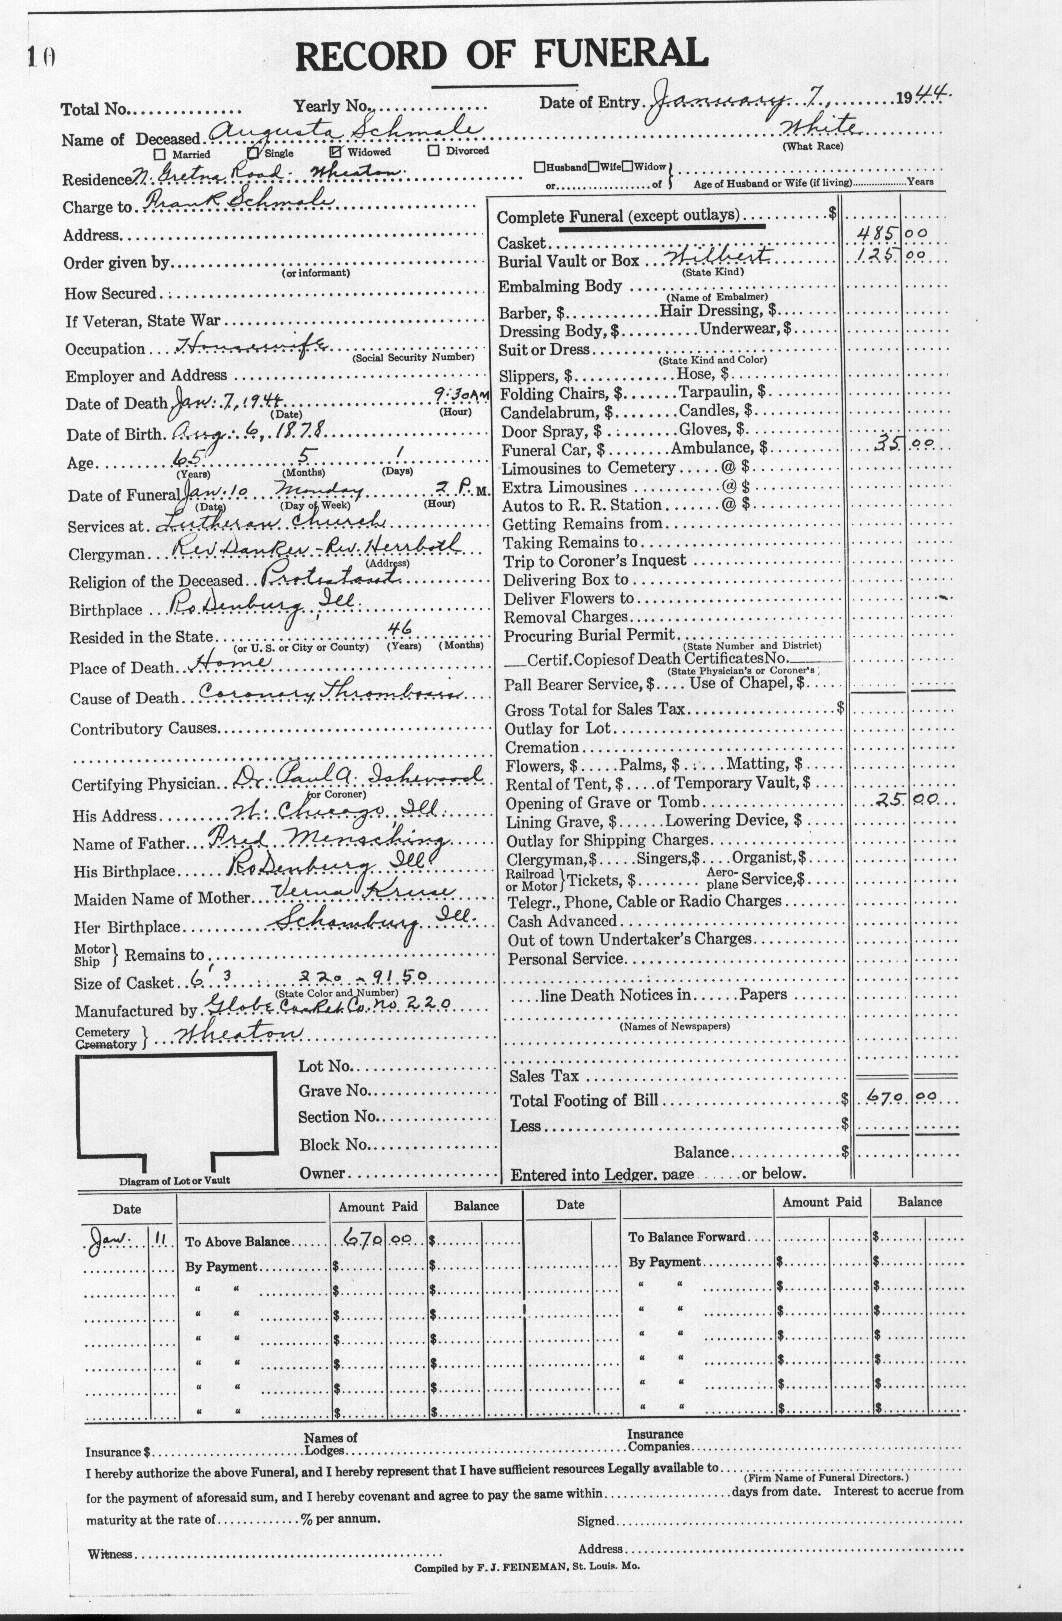 10
RECORD OF FUNERAL
Total No. Yearly No. Date of Entry. January 7, 1944.
Name of Deceased. Augusta Schmale White
Married Single Widowed Divorced (What Race)
Residence N. Gretna Road. Wheaton. Husband Wife Widow
or of Age of Husband or Wife (if living) Years
Charge to. Frank Schmale
Address
Order given by
(or informant)
How Secured
If Veteran, State War
Occupation Housewife
(Social Security Number)
Employer and Address
Date of Death Jan. 7, 1944 9:30 AM
(Date) (Hour)
Date of Birth. Aug. 6, 1878
Age 65 5 1
(Years) (Months) (Days)
Date of Funeral Jan. 10 Monday 2 P. M.
(Date) (Day of Week) (Hour)
Services at. Lutheran Church
Clergyman Rev Danker - Rev. Herrboth
(Address)
Religion of the Deceased Protestant
Birthplace Rodenburg, Ill.
Resided in the State 46
(or U. S. or City or County) (Years) (Months)
Place of Death Home
Cause of Death Coronary Thrombosis
Contributory Causes
Certifying Physician Dr. Paul A. Isherwood
(or Coroner)
His Address W. Chicago, Ill.
Name of Father Fred Mensching
His Birthplace Rodenburg Ill
Maiden Name of Mother Verna Kruse
Her Birthplace Schamburg Ill.
Motor
Ship Remains to
Size of Casket 6' 3 220 - 9150
(State Color and Number)
Manufactured by Globe Casket Co. no 220
Cemetery
Crematory Wheaton
Lot No.
Grave No.
Section No.
Block No.
Owner
Diagram of Lot or Vault
Complete Funeral (except outlays) $
Casket 485 00
Burial Vault or Box Wilbert 125 00
(State Kind)
Embalming Body
(Name of Embalmer)
Barber, $ Hair Dressing, $
Dressing Body, $ Underwear, $
Suit or Dress
(State Kind and Color)
Slippers, $ Hose, $
Folding Chairs, $ Tarpaulin, $
Candelabrum, $ Candles, $
Door Spray, $ Gloves, $
Funeral Car, $ Ambulance, $ 35 00
Limousines to Cemetery @ $
Extra Limousines @ $
Autos to R. R. Station @ $
Getting Remains from
Taking Remains to
Trip to Coroner's Inquest
Delivering Box to
Deliver Flowers to
Removal Charges
Procuring Burial Permit
(State Number and District)
Certif. Copies of Death Certificates No.
(State Physician's or Coroner's
Pall Bearer Service, $ Use of Chapel, $
Gross Total for Sales Tax $
Outlay for Lot
Cremation
Flowers, $ Palms, $ Matting, $
Rental of Tent, $ of Temporary Vault, $
Opening of Grave or Tomb 25 00
Lining Grave, $ Lowering Device, $
Outlay for Shipping Charges
Clergyman, $ Singers, $ Organist, $
Railroad
or Motor Tickets, $ Aero-
plane Service, $
Telegr., Phone, Cable or Radio Charges
Cash Advanced
Out of town Undertaker's Charges
Personal Service
line Death Notices in Papers
(Names of Newspapers)
Sales Tax
Total Footing of Bill $ 670 00
Less $
Balance $
Entered into Ledger. page or below.
Date Amount Paid Balance Date Amount Paid Balance
Jan. 11 To Above Balance 670 00 $ To Balance Forward $
By Payment $ $ By Payment $ $
" " $ $ " " $ $
" " $ $ " " $ $
" " $ $ " " $ $
" " $ $ " " $ $
" " $ $ " " $ $
" " $ $ " " $ $
Insurance $ Names of
Lodges Insurance
Companies
I hereby authorize the above Funeral, and I hereby represent that I have sufficient resources Legally available to
(Firm Name of Funeral Directors.)
for the payment of aforesaid sum, and I hereby covenant and agree to pay the same within days from date. Interest to accrue from
maturity at the rate of % per annum. Signed
Witness Address
Compiled by F. J. FEINEMAN, St. Louis. Mo.